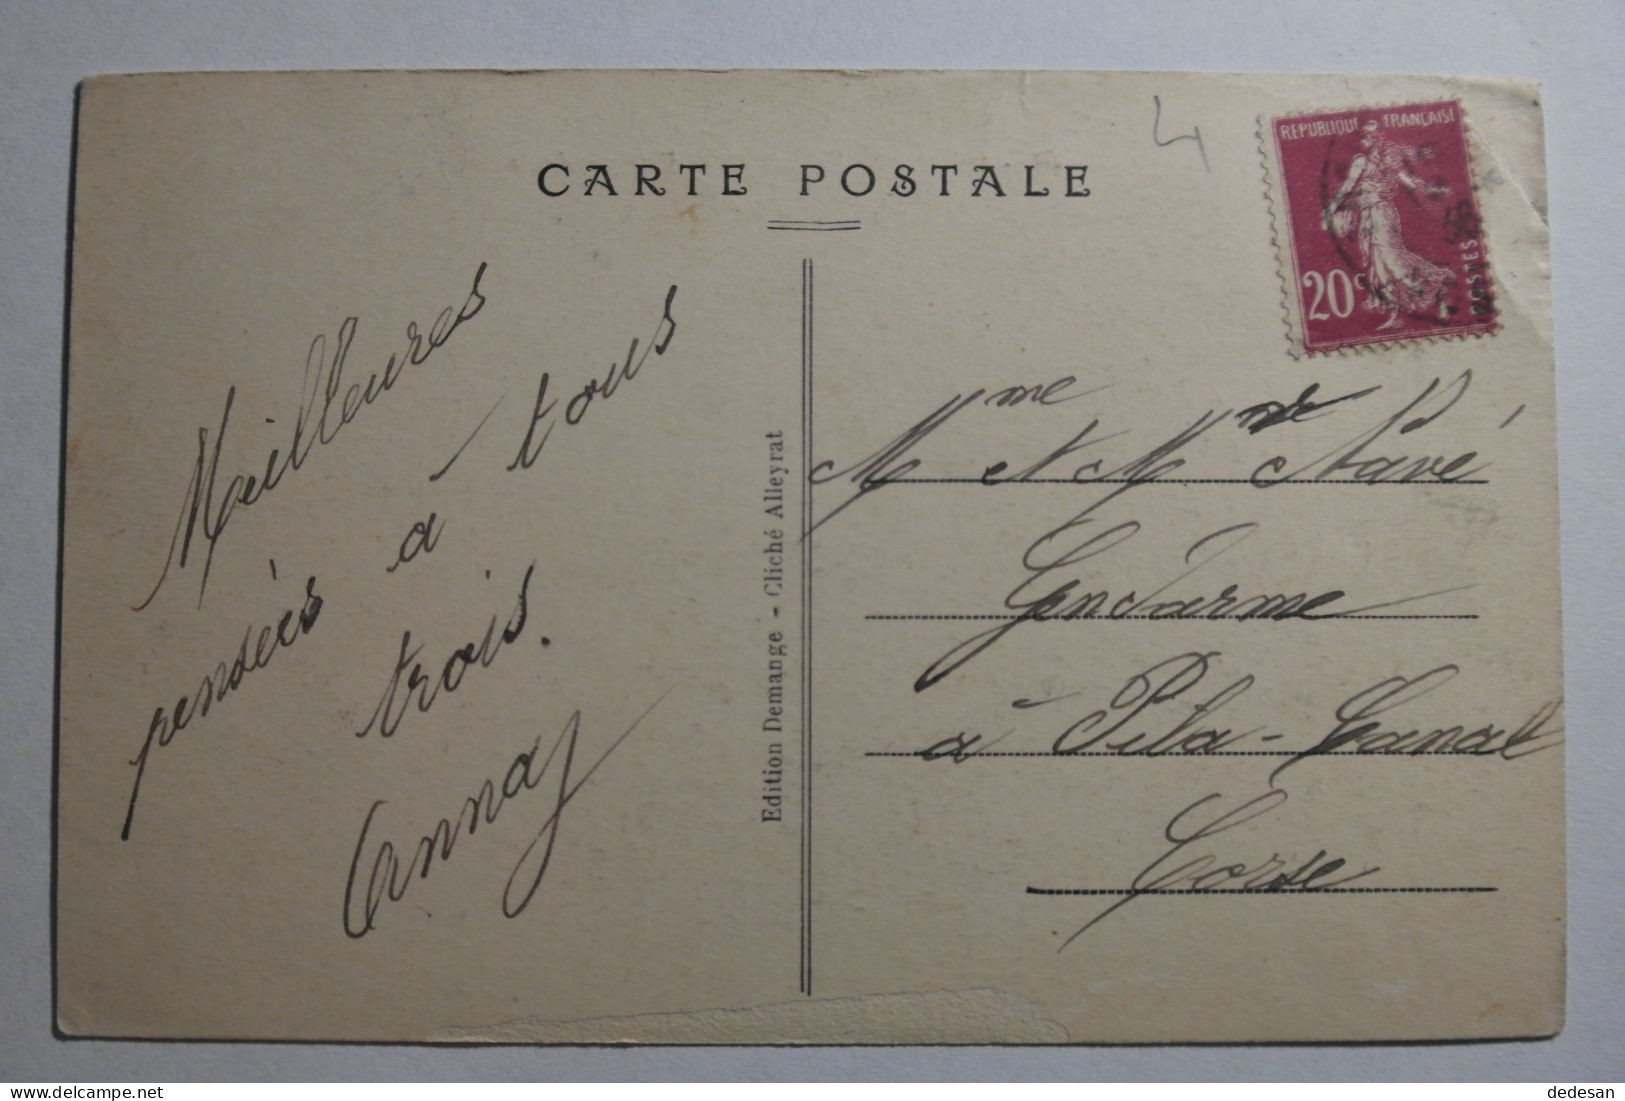 4
CARTE POSTALE
REPUBLIQUE FRANÇAISE
20c
POSTES
Meilleures
pensées à tous
trois.
Anna
Edition Demange - Cliché Alleyrat
Mme et M
Gendarme
à Pila-Canal
Corse
dedesan